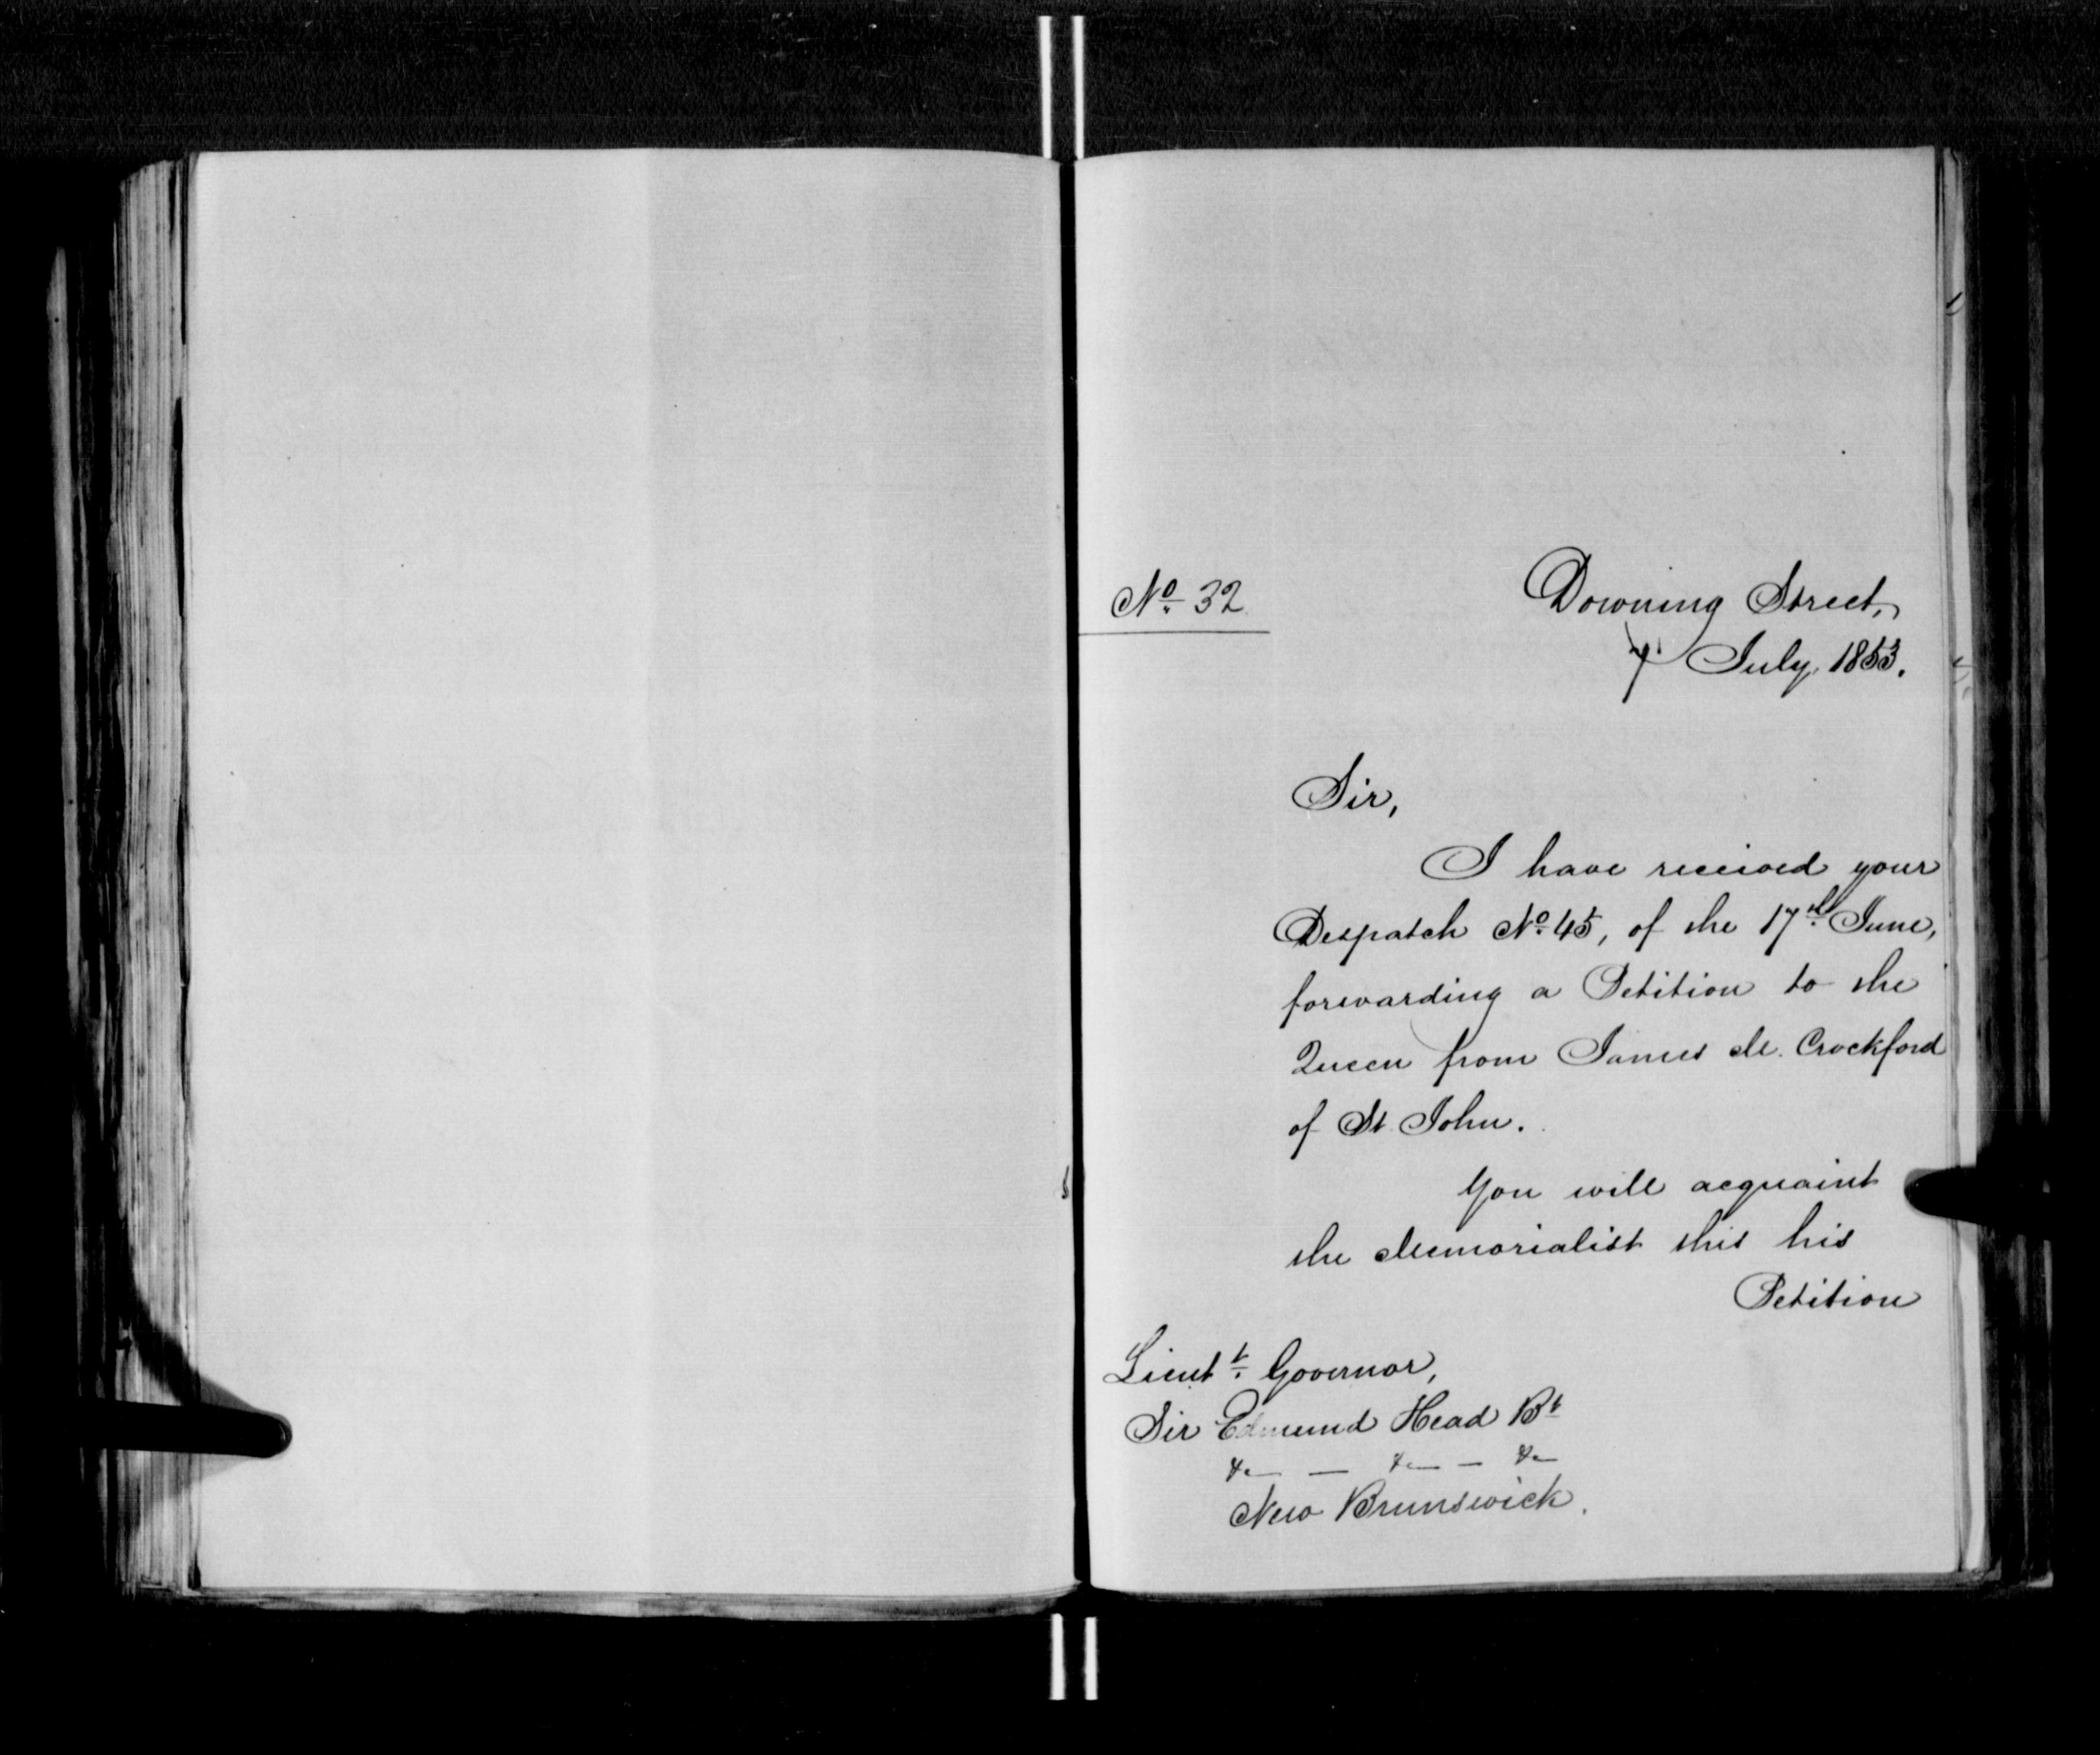 No. 32
Downing Street,
7 July, 1853.
Sir,
I have received your
Despatch No. 45, of the 17th June,
forwarding a Petition to the
Queen from James M. Crockford
of St. John.
You will acquaint
the Memorialist this his
Petition
Lieut t. Governor,
Sir Edmund Head Bt
&c — &c — &c
New Brunswick.